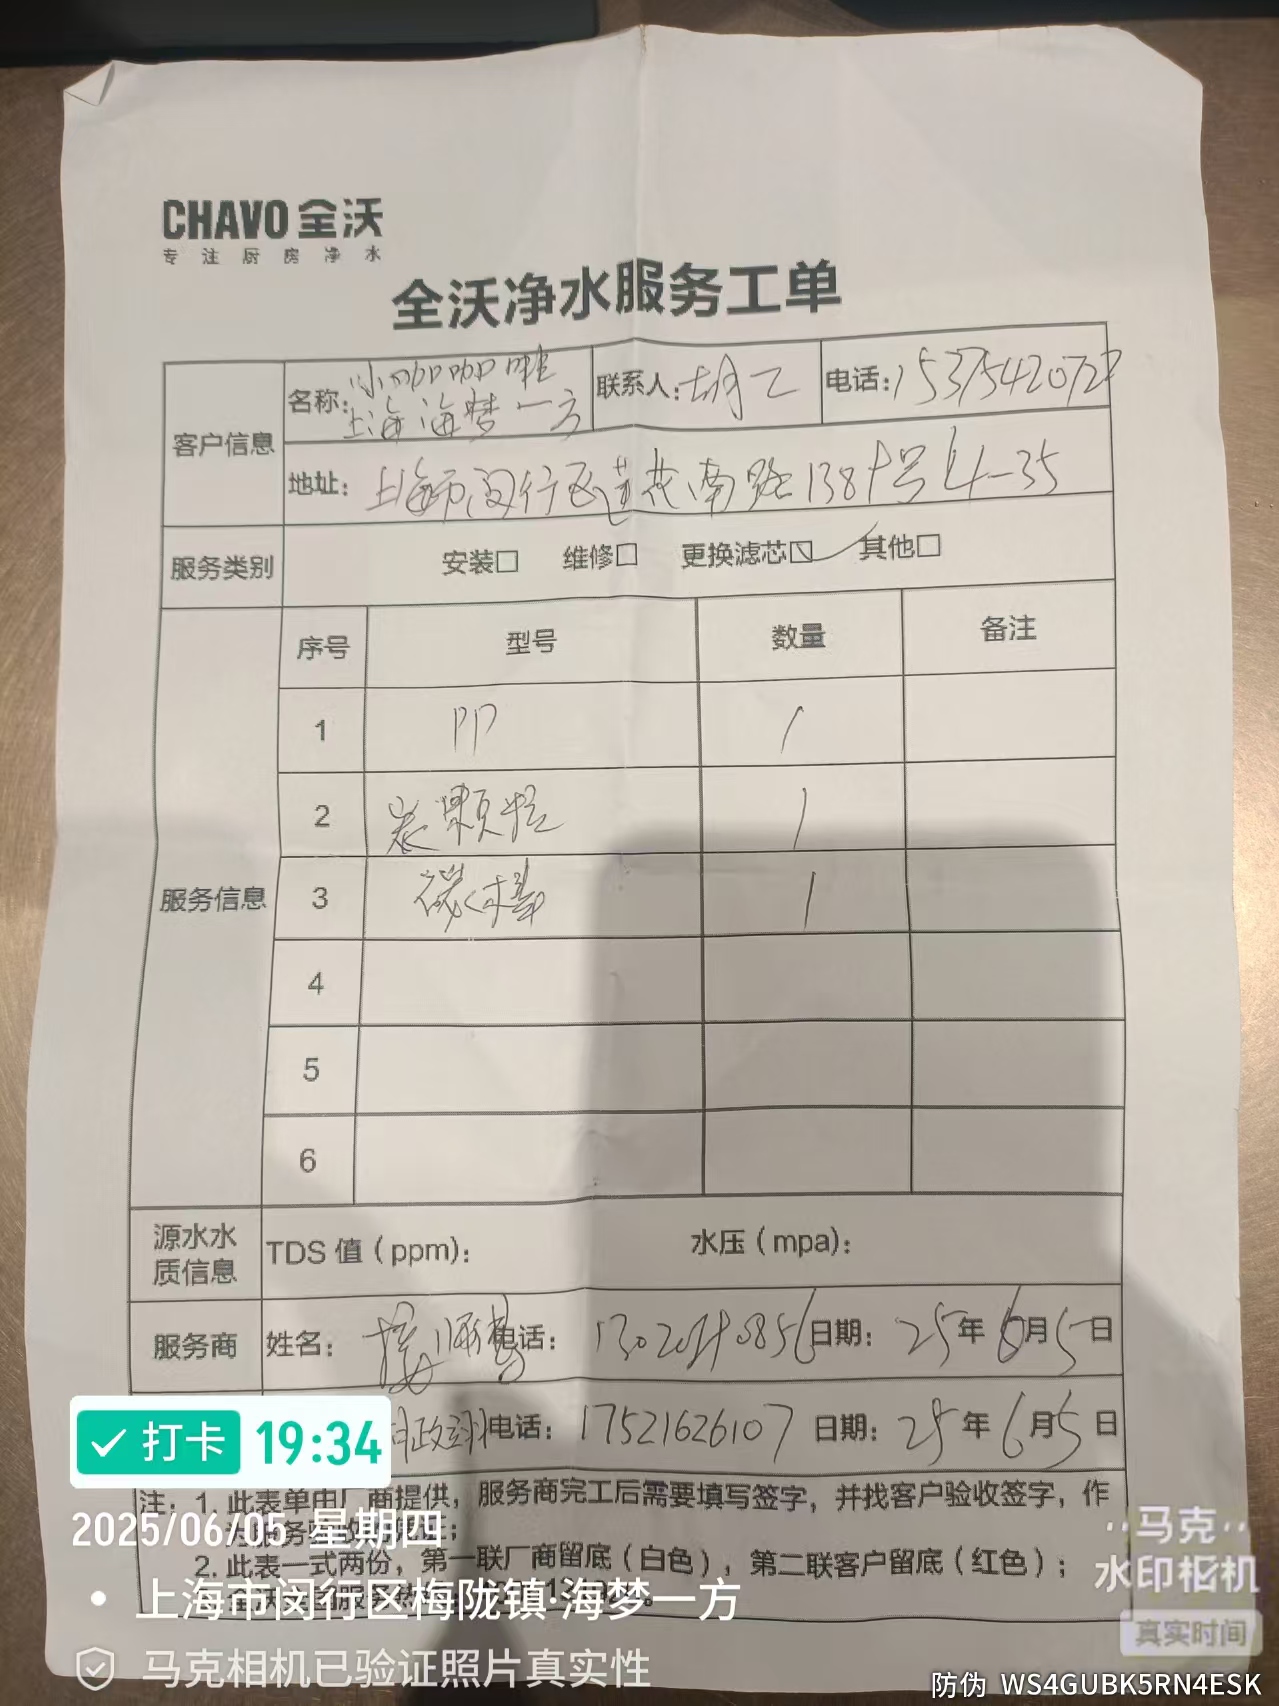 CHAVO 全沃
专注厨房净水
全沃净水服务工单
客户信息
名称：小咖咖啡
上海海梦一方
联系人：胡工
电话：
地址：上海市闵行区莲花南路138号L4-35
服务类别
安装□ 维修□ 更换滤芯☑ 其他□
服务信息
序号 型号 数量 备注
1 PP 1
2 炭颗粒 1
3 碳棒 1
4
5
6
源水水质信息
TDS 值（ppm）： 水压（mpa）：
服务商 姓名： 电话： 日期：25年6月5日
电话：17521626107 日期：25年6月5日
注：1. 此表单由厂商提供，服务商完工后需要填写签字，并找客户验收签字，作
2. 此表一式两份，第一联厂商留底（白色），第二联客户留底（红色）；
打卡 19:34
2025/06/05 星期四
上海市闵行区梅陇镇·海梦一方
马克相机已验证照片真实性
马克
水印相机
真实时间
防伪 WS4GUBK5RN4ESK